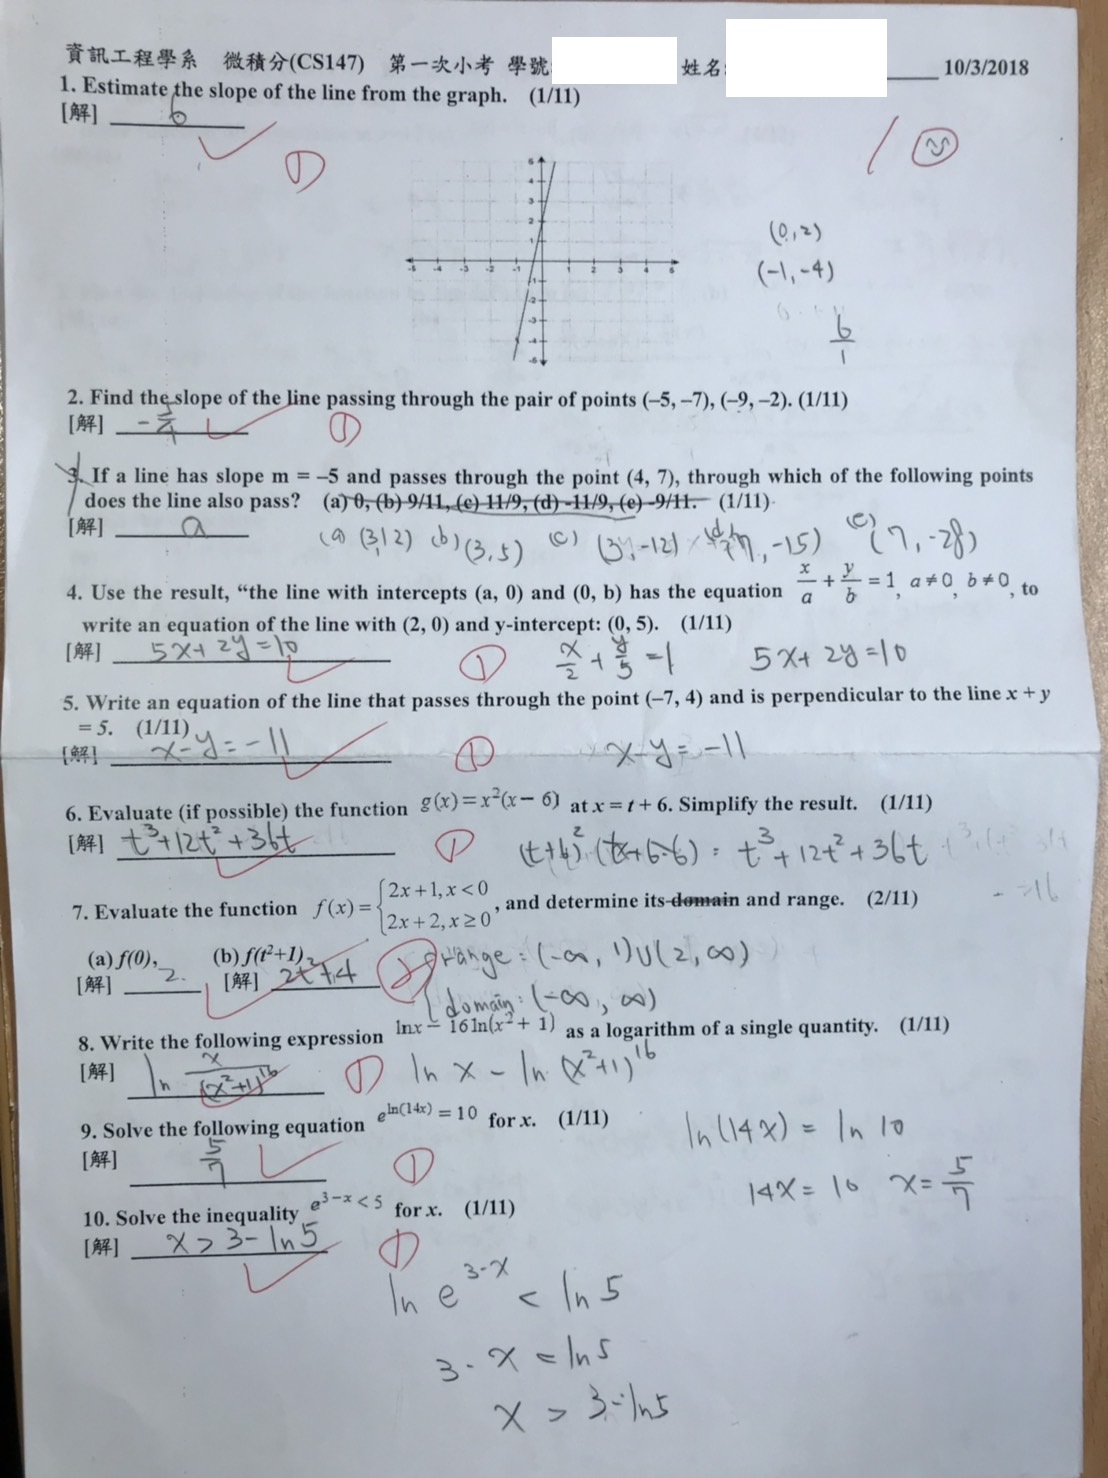 資訊工程學系 微積分(CS147) 第一次小考 學號: 姓名: 10/3/2018
1. Estimate the slope of the line from the graph. (1/11)
[解] 6
1
1
(0,2)
(-1,-4)
6/1
2. Find the slope of the line passing through the pair of points (–5, –7), (–9, –2). (1/11)
[解] -5/4
1
3. If a line has slope m = –5 and passes through the point (4, 7), through which of the following points
does the line also pass? (a) 0, (b) 9/11, (c) 11/9, (d) -11/9, (e) -9/11. (1/11)
[解] a (a) (3,12) (b) (3,5) (c) (3, -12) (d) (7, -15) (e) (7, -28)
4. Use the result, “the line with intercepts (a, 0) and (0, b) has the equation x/a + y/b = 1, a≠0, b≠0, to
write an equation of the line with (2, 0) and y-intercept: (0, 5). (1/11)
[解] 5x+2y=10 1 x/2 + y/5 = 1 5x+2y=10
5. Write an equation of the line that passes through the point (–7, 4) and is perpendicular to the line x + y
= 5. (1/11)
[解] x-y=-11 1 x-y=-11
6. Evaluate (if possible) the function g(x)=x²(x− 6) at x = t + 6. Simplify the result. (1/11)
[解] t³+12t²+36t 1 (t+6)² (t+6-6) = t³+12t²+36t
7. Evaluate the function f(x)={2x+1, x<0
2x+2, x≥0, and determine its domain and range. (2/11)
(a) f(0), (b) f(t²+1),
[解] 2. [解] 2t²+4 2
range: (-∞, 1)∪(2, ∞)
domain: (-∞, ∞)
8. Write the following expression lnx − 16ln(x²+ 1) as a logarithm of a single quantity. (1/11)
[解] ln x/(x²+1)¹⁶ 1 ln x - ln (x²+1)¹⁶
9. Solve the following equation e^ln(14x) = 10 for x. (1/11)
[解] 5/7 1
ln(14x) = ln 10
14x = 10 x = 5/7
10. Solve the inequality e^3−x < 5 for x. (1/11)
[解] x > 3-ln5 1
ln e^3-x < ln 5
3-x < ln5
x > 3-ln5